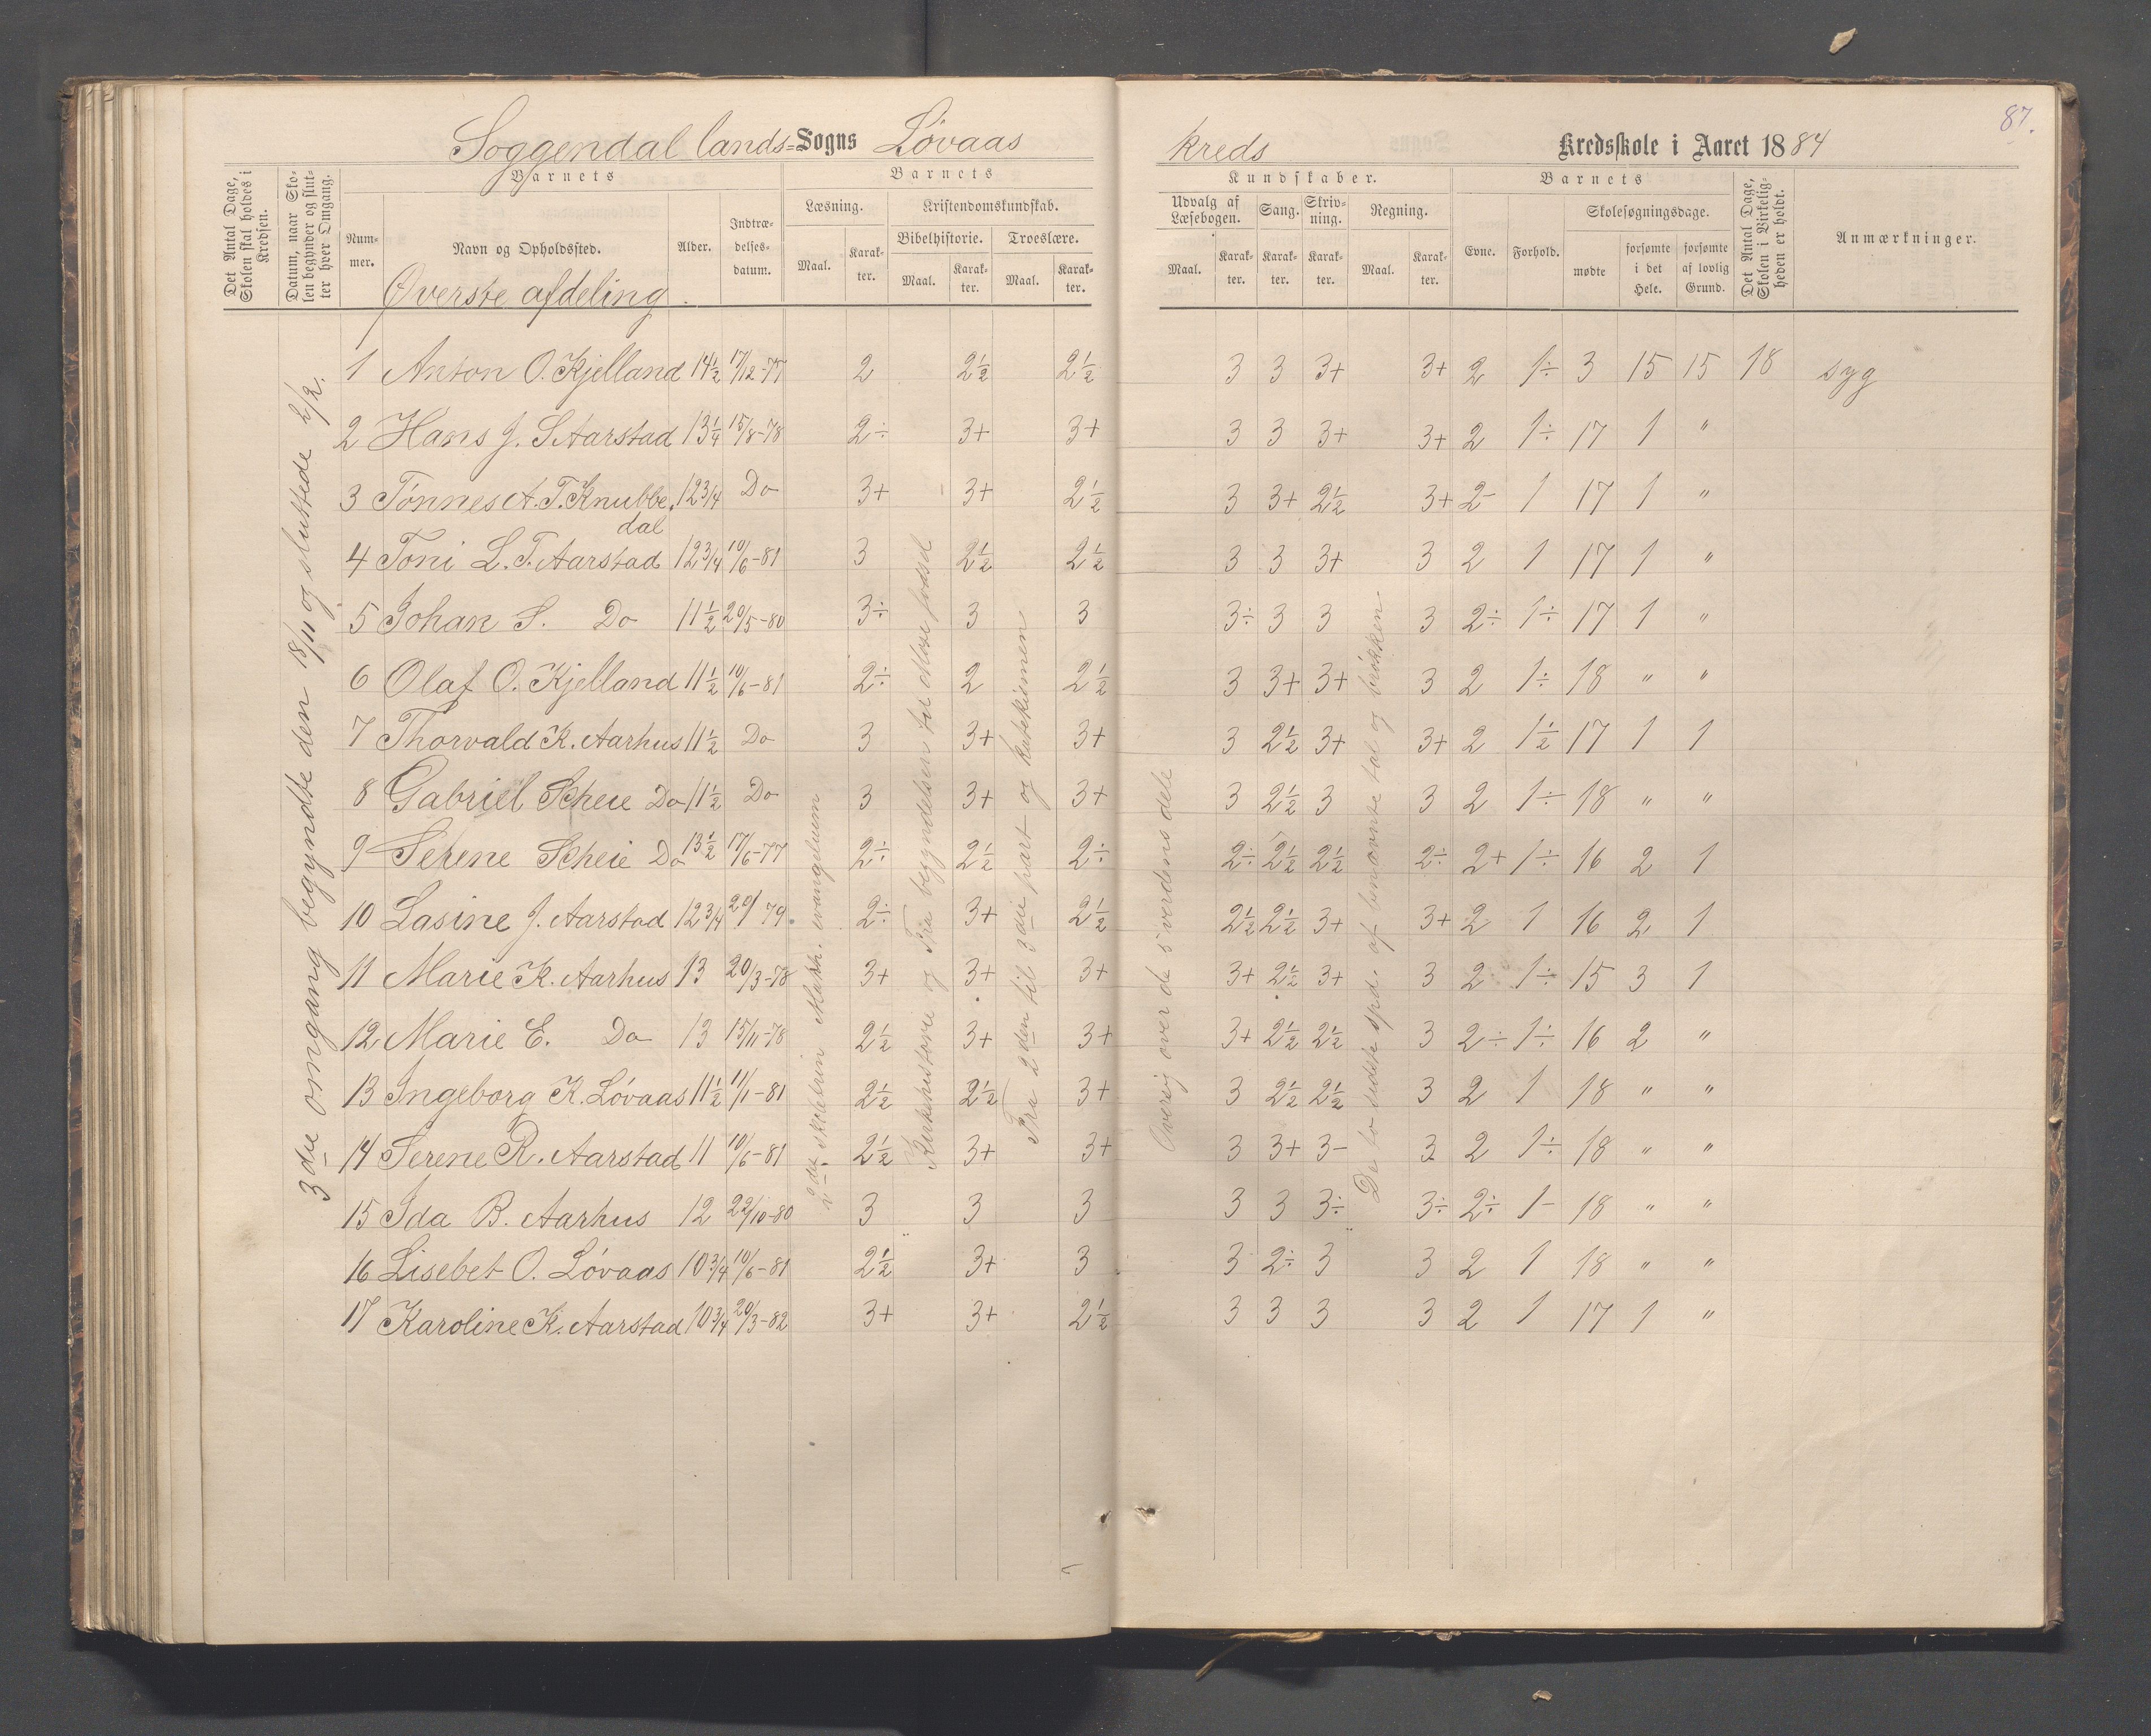 87.
Soggendal lands=Sogns Løvaas kreds Kredsskole i Aaret 1884
Det Antal Dage, Skolen skal holdes i Kredsen.
Datum, naar Skolen begynder og slutter hver Omgang.
Barnets
Nummer.
Navn og Opholdssted.
Alder.
Indtrædelsesdatum.
Barnets
Læsning.
Maal.
Karakter.
Kristendomskundskab.
Bibelhistorie.
Maal.
Karakter.
Troeslære.
Maal.
Karakter.
Kundskaber.
Udvalg af Læsebogen.
Maal.
Karakter.
Sang.
Karakter.
Skrivning.
Karakter.
Regning.
Maal.
Karakter.
Barnets
Evne.
Forhold.
Skolesøgningsdage.
mødte
forsømte i det Hele.
forsømte af lovlig Grund.
Det Antal Dage, Skolen i Virkeligheden er holdt.
Anmærkninger.
Øverste afdeling.
3die omgang begyndte den 18/11 og sluttede 2/12.
1 Anton O. Kjelland 14½ 17/12-77 2 2½ 2½ 3 3 3+ 3+ 2 1÷ 3 15 15 18 syg
2 Hans J. S Aarstad 13¼ 15/8-78 2÷ 3+ 3+ 3 3 3+ 3+ 2 1÷ 17 1 "
3 Tønnes A. T. Knubbedal 12 3/4 Do 3+ 3+ 2½ 3 3+ 2½ 3+ 2- 1 17 1 "
4 Toni L. T. Aarstad 12 3/4 10/6-81 3 2½ 2½ 3 3 3+ 3 2 1 17 1 "
5 Johan S. Do 11½ 20/5-80 3÷ 3 3 3÷ 3 3 3 2÷ 1÷ 17 1 "
6 Olaf O. Kjelland 11½ 10/6-81 2÷ 2 2½ 3 3+ 3+ 3 2 1÷ 18 " "
7 Thorvald K. Aarhus 11½ Do 3 3+ 3+ 3 2½ 3+ 3+ 2 1½ 17 1 1
8 Gabriel Scheie Do 11½ Do 3 3+ 3+ 3 2½ 3 3 2 1÷ 18 " "
9 Serene Scheie Do 13½ 17/6-77 2÷ 2½ 2÷ 2÷ 2½ 2½ 2÷ 2+ 1÷ 16 2 1
10 Lasine J. Aarstad 12 3/4 20/ 79 2÷ 3+ 2½ 2½ 2½ 3+ 3+ 2 1 16 2 1
11 Marie K. Aarhus 13 20/3-78 3+ 3+ 3+ 3+ 2½ 3+ 3 2 1÷ 15 3 1
12 Marie E. Do 13 15/11-78 2½ 3+ 3+ 3+ 2½ 2½ 3 2÷ 1÷ 16 2 "
13 Ingeborg K. Løvaas 11½ 11/1-81 2½ 2½ 3+ 3 2½ 2½ 3 2 1 18 " "
14 Serene R. Aarstad 11 10/6-81 2½ 3+ 3+ 3 3+ 3- 3 2 1÷ 18 " "
15 Ida B. Aarhus 12 22/10-80 3 3 3 3 3 3÷ 3÷ 2÷ 1- 18 " "
16 Lisebet O. Løvaas 10 3/4 10/6-81 2½ 3+ 3 3 2÷ 3 3 2 1 18 " "
17 Karoline K. Aarstad 10 3/4 20/3-82 3+ 3+ 2½ 3 3 3 3 2 1 17 1 "
Kirkehistorie og Fra begyndelsen til Mose fødsel
Fra 2den til 3die part og katekismen
Oversig over de 5 verdensdele
De to sidste spd. af benævnte tal og brøkken